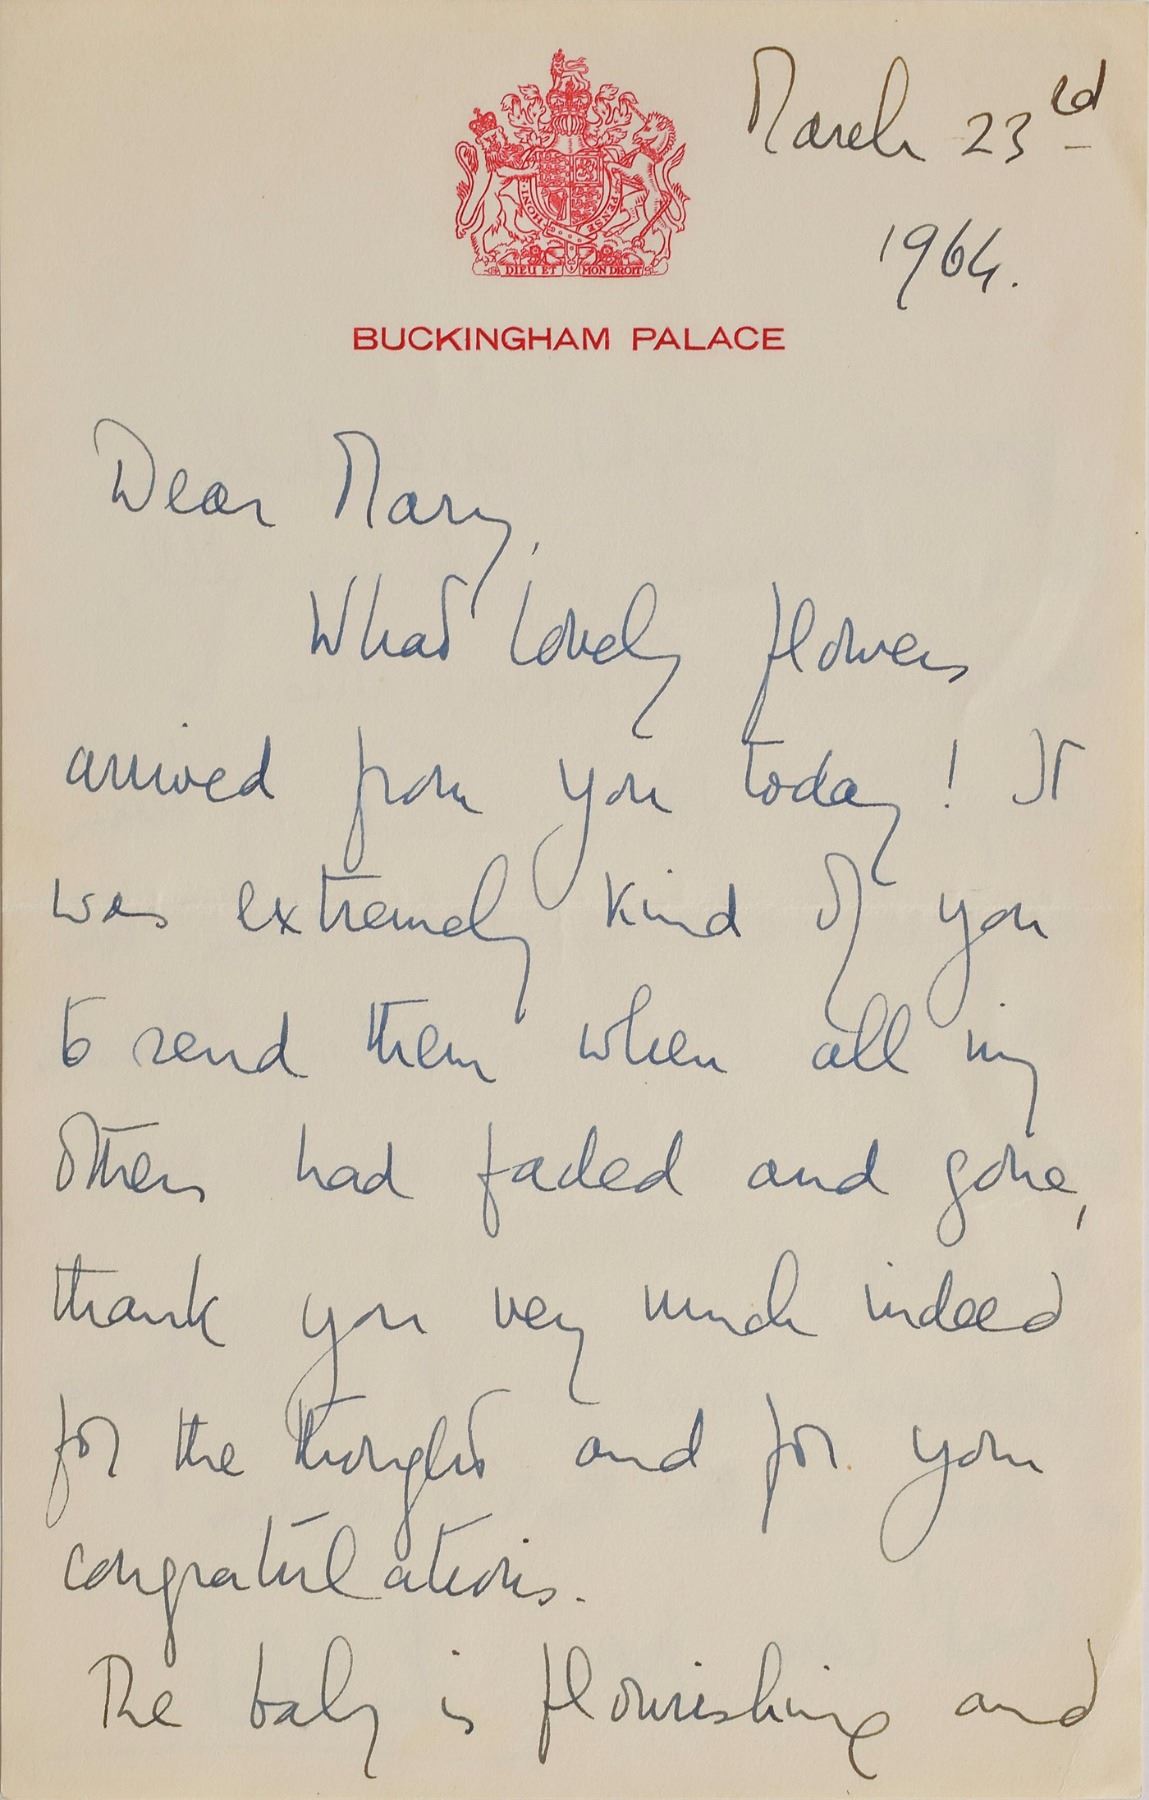 March 23rd
1964.
HONI
PENSE
DIEU ET MON DROIT
BUCKINGHAM PALACE
Dear Mary,
What lovely flowers
arrived from you today! It
was extremely kind of you
to send them when all my
others had faded and gone,
thank you very much indeed
for the thought and for your
congratulations.
The baby is flourishing and